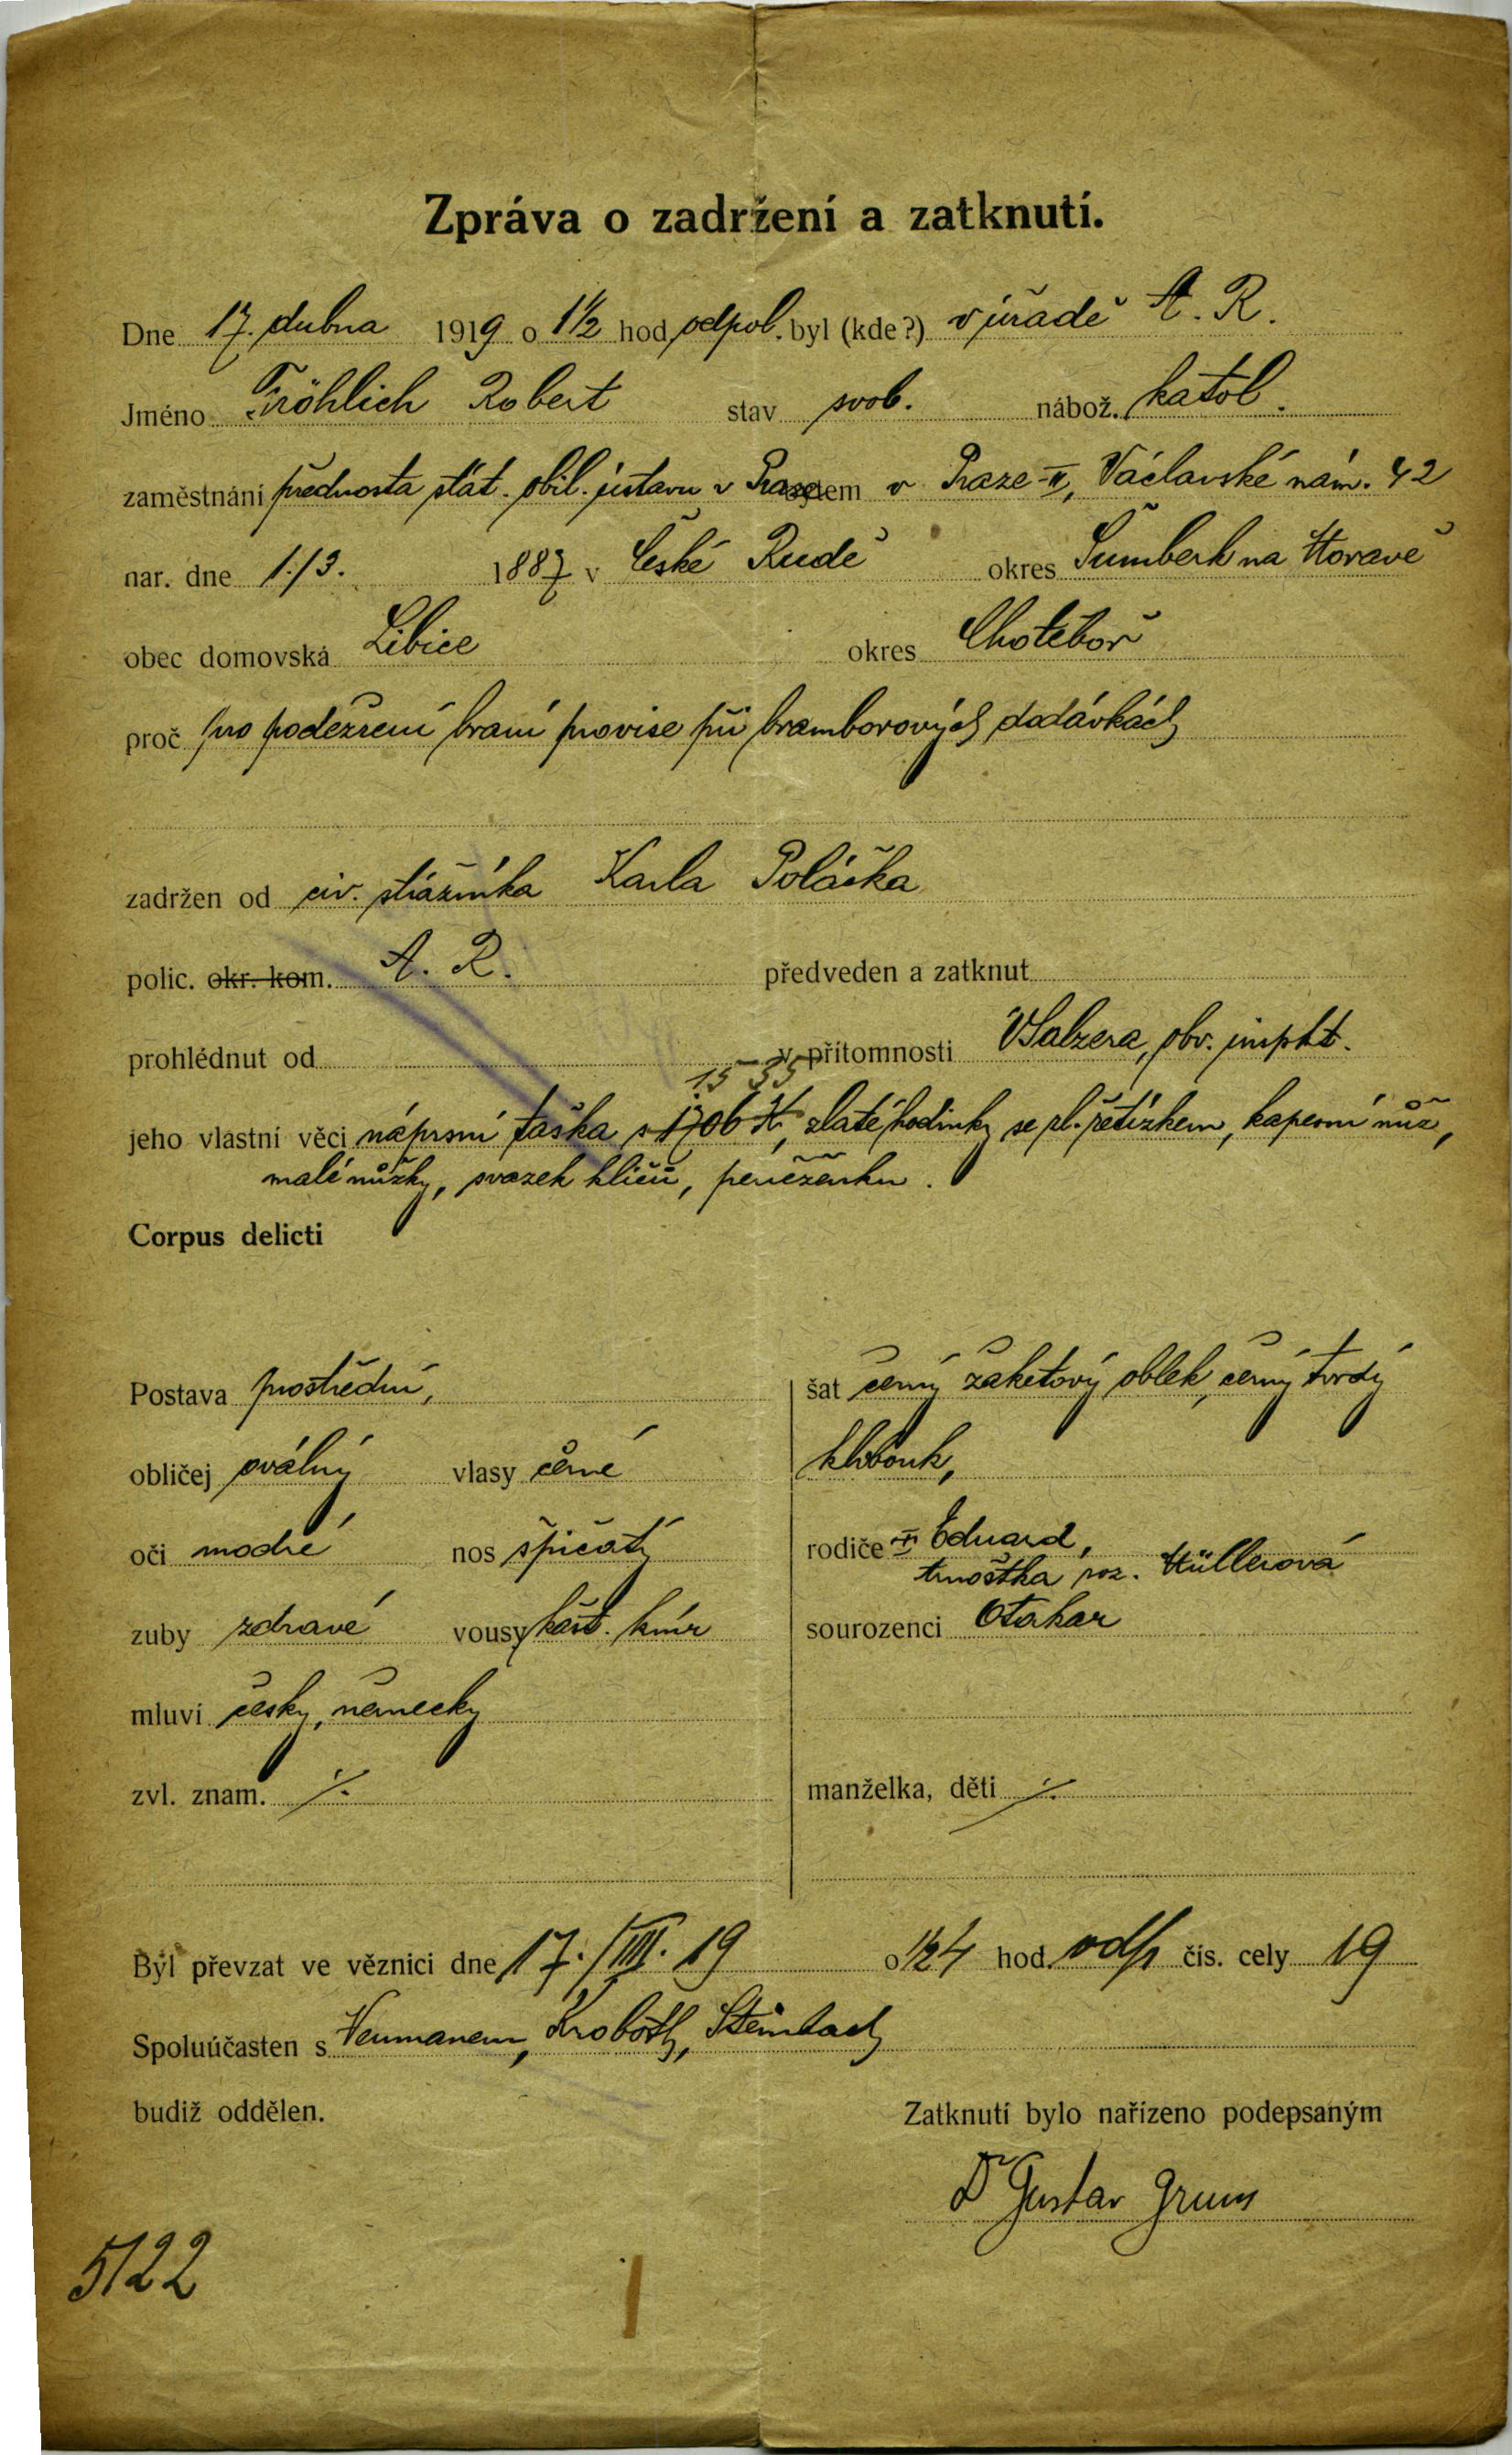 Zpráva o zadržení a zatknutí.
Dne 17. dubna 1919 o 1½ hod. odpol. byl (kde?) v úřadě A. R.
Jméno Fröhlich Robert stav svob. nábož. katol.
zaměstnání přednosta stát. obil. ústavu v Praze bytem v Praze-II, Václavské nám. 42
nar. dne 1./3. 1887 v České Rudě okres Šumberk na Moravě
obec domovská Libice okres Chotěboř
proč pro podezření braní provise při bramborových dodávkách
zadržen od civ. strážníka Karla Poláčka
polic. okr. kom. A. R. předveden a zatknut
prohlédnut od v přítomnosti Salzera, obv. inspkt.
15 35
jeho vlastní věci náprsní taška s 1706 K, zlaté hodinky se zl. řetízkem, kapesní nůž,
malé nůžky, svazek klíčů, peněženku.
Corpus delicti
Postava prostřední, šat černý žaketový oblek, černý tvrdý
obličej oválný vlasy černé klobouk,
oči modré nos špičatý rodiče Eduard,
Arnoštka roz. Müllerová
zuby zdravé vousy kašt. knír sourozenci Otakar
mluví česky, německy
zvl. znam. ·/. manželka, děti ·/.
Byl převzat ve věznici dne 17./IIII. 19 o ½4 hod. odp čís. cely 19
Spoluúčasten s Neumanem, Kroboth, Steinbach
budiž oddělen. Zatknutí bylo nařízeno podepsaným
Dr Gustav Gruss
5122